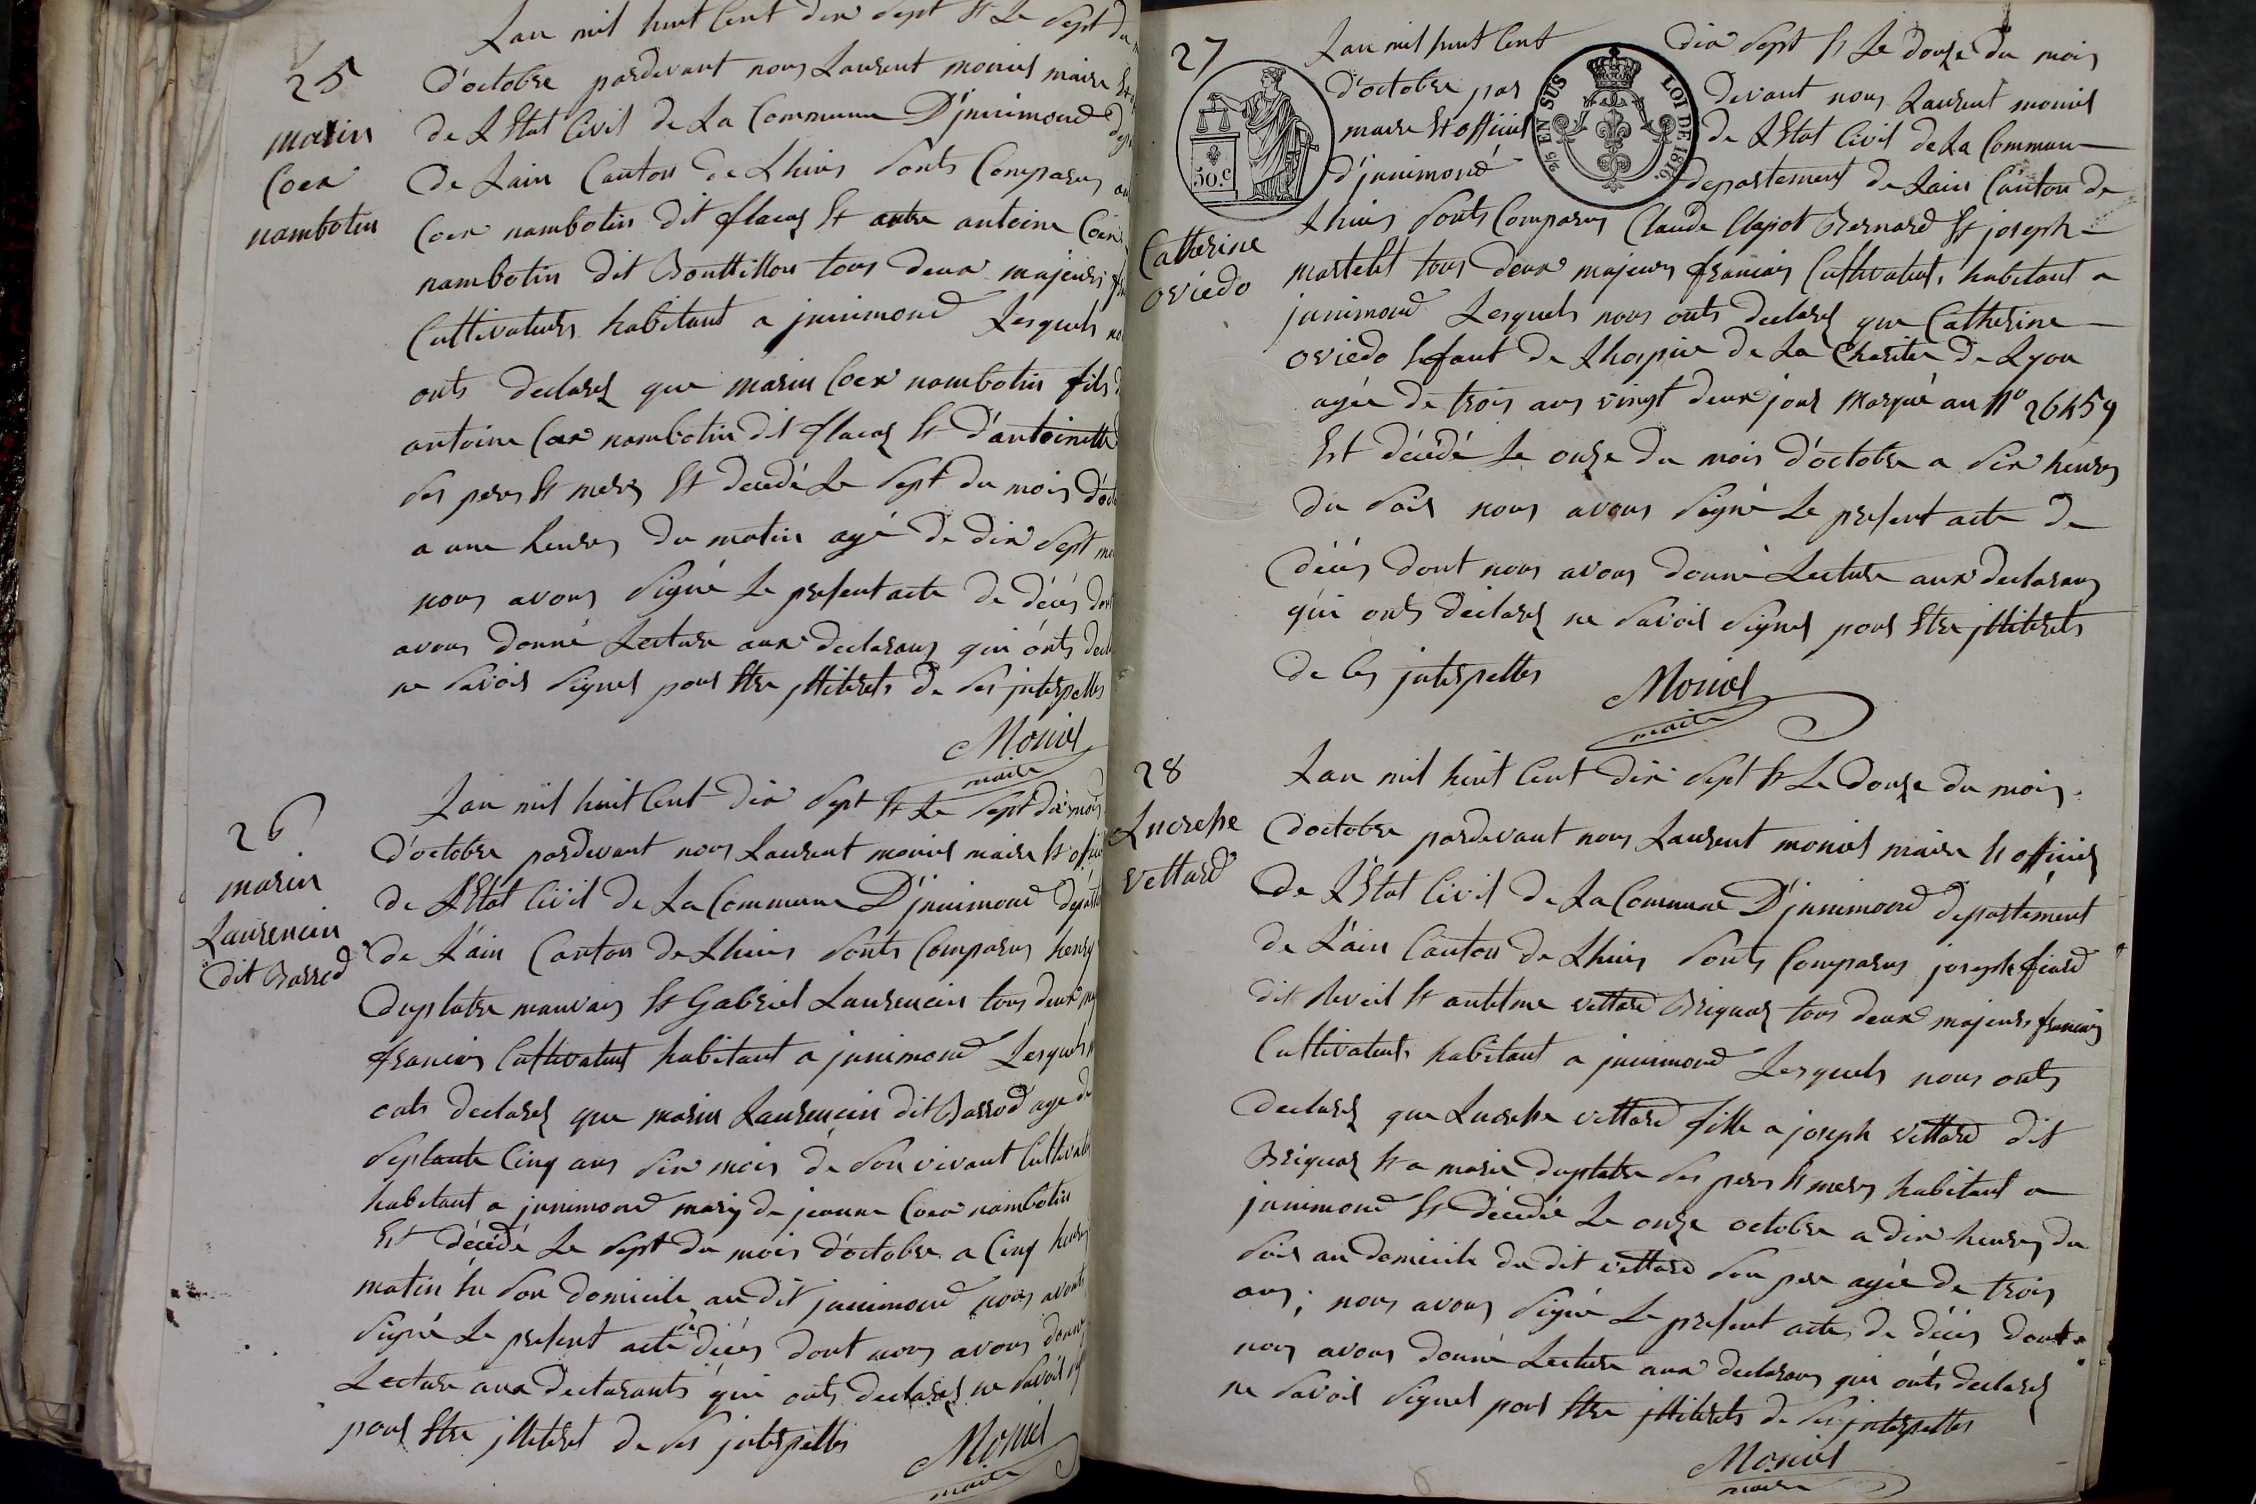 Lan mil huit Cent dix Sept Et Le Sept du
25
marin
Coex
nambotin
d'octobre pardevant nous Laurent moniel maire Et
de LEtat Civil de La Commune D'jnnimond
De Lain Canton de Lhuis Sonts Comparus
Coex nambotin dit flacas Et antoine Coex
nambotin dit Bouttillon tous deux majeurs
Cultivateurs habitant a jnnimond Lesquels
onts declarez que marin Coex nambotin fils
antoine Coex nambotin dit flacas Et d'antoinette
Ses peres Et meres Et decedé Le Sept du mois
a une heures du matin agé de dix Sept
nous avons Signé Le present acte de décés
avons donné Lecture aux declarans qui onts
ne Savoir Signer pour Etre jlliterets de Ses jnterpelles
Moniel
maire
26
marin
Laurencin
dit Barrod
Lan mil huit Cent dix Sept Et Le Sept du mois
d'octobre pardevant nous Laurent moniel maire Et
de LEtat Civil de La Commune D'jnnimond
de Lain Canton de Lhuis Sonts Comparus henry
Duplatre mauvais Et Gabriel Laurencin tous deux
francais Cultivateurs habitant a jnnimond Lesquels
onts declarez que marin Laurencin dit Barrod age de
Septante Cinq ans Six mois de Son vivant
habitant a jnnimond mary de jeanne Coex nambotin
Est décédé Le Sept du mois d'octobre a Cinq heures
matin En Son domicile au dit jnnimond nous avons
Signé Le present acte de décés dont nous avons
Lecture aux declarants qui onts declarez ne Savoir
pour Etre jlliteret de Ses jnterpelles
Moniel
maire
27
Catherine
oviedo
50.c
25 EN SUS
LOI DE 1816.
Lan mil huit Cent dix Sept Et Le douze du mois
d'octobre par devant nous Laurent moniel
maire Et officier de LEtat Civil de La Commune
d'jnnimond departement de Lain Canton de
Lhuis Sonts Comparus Claude Clapot Bernard Et joseph
martelet tous deux majeurs francais Cultivateurs habitant a
jnnimond Lesquels nous onts declarez que Catherine
oviedo Enfant de Lhospice de La Charite de Lyon
agée de trois ans vingt deux jour Marqué au No
Est décédé Le onze du mois d'octobre a Six heures
du Soir nous avons Signé Le present acte de
décés dont nous avons donné Lecture aux declarans
qui onts déclarez ne Savoir Signer pour Etre jlliterets
de Ces jnterpelles
Moniel
maire
28
Lucresse
vettard
Lan mil huit Cent dix Sept Et Le douze du mois
doctobre pardevant nous Laurent moniel maire Et officier
de LEtat Civil de La Commune D'jnnimond departement
de Lain Canton de Lhuis Sonts Comparus joseph fiard
dit Reveil Et antelme vettard Briquas tous deux majeurs francais
Cultivateurs habitant a jnnimond Lesquels nous onts
declarez que Lucresse vettard fille a joseph vettard dit
Briquas Et a marie duplatre Ses peres Et meres habitant a
jnnimond Et décedée Le onze octobre a dix heures du
Soir au domicile du dit vettard Son pere agée de trois
ans; nous avons Signé Le present acte de décés dont
nous avons donné Lecture aux declarans qui onts declarez
ne Savoir Signer pour Etre jlliterets de Ses jnterpelles
Moniel
maire